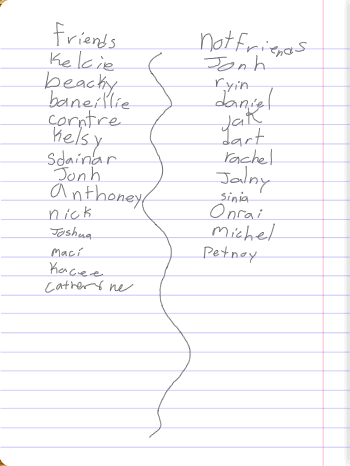 Friends
Kelcie
beacky
baneillie
corntre
Kelsy
sdainar
Jonh
Anthoney
nick
Joshua
maci
Kacee
Catherine
not Friends
Jonh
ryin
daniel
jak
dart
rachel
Jalny
sinia
Onrai
Michel
Petnoy